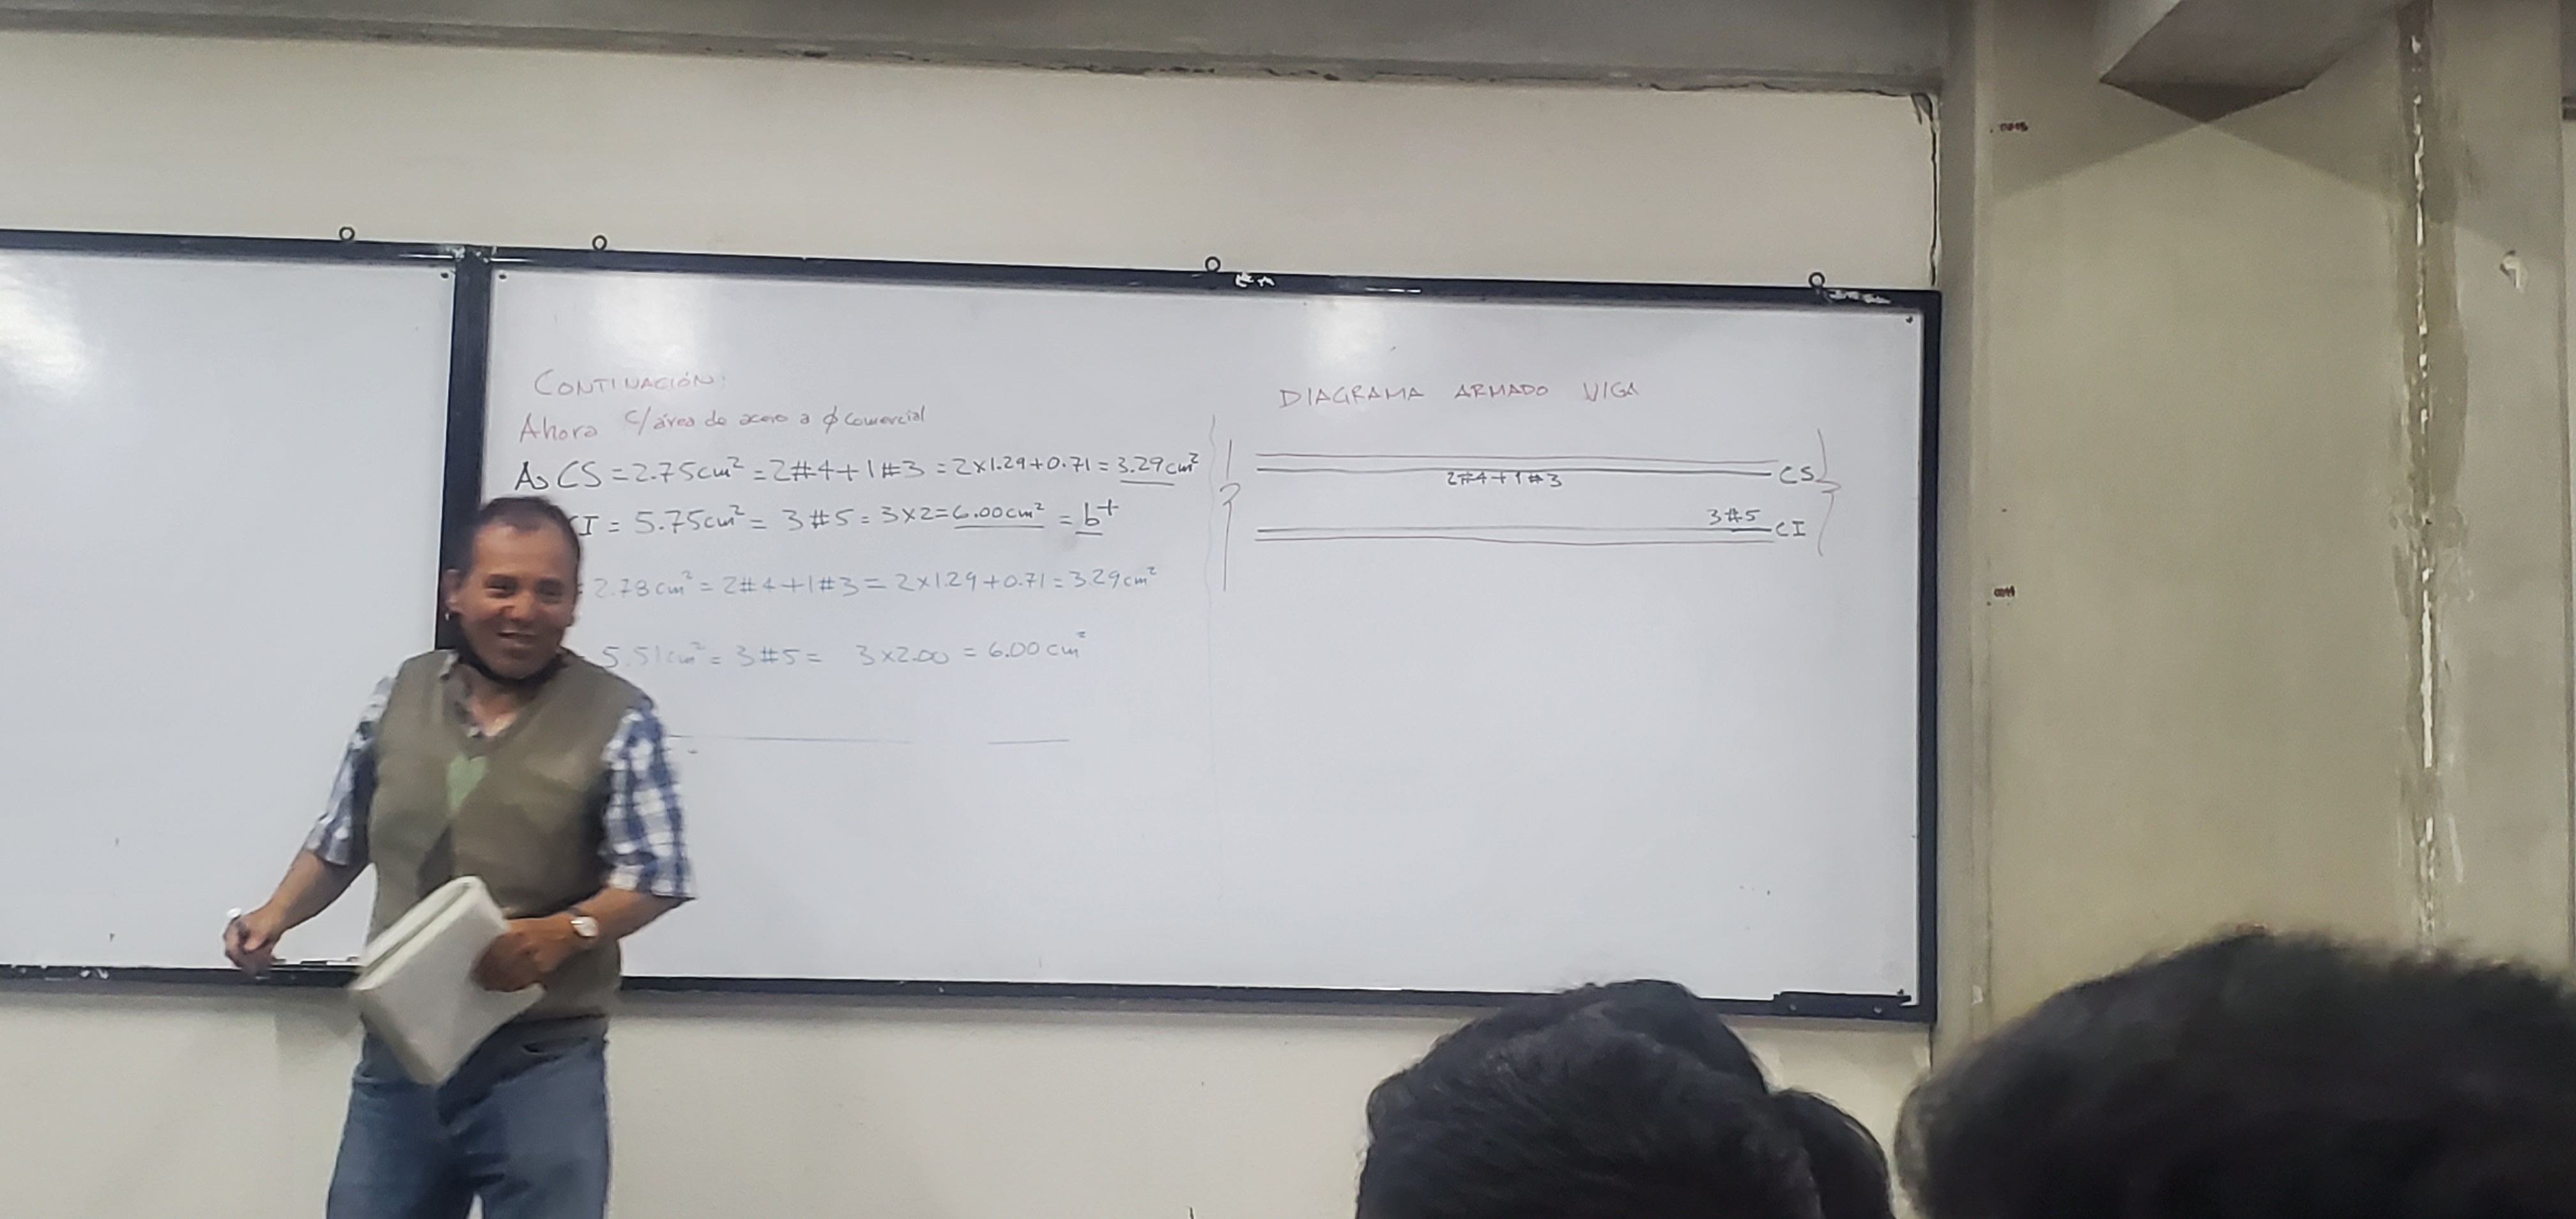 CONTINACIÓN:
Ahora c/área de acero a ϕ comercial
As CS = 2.75cm² = 2#4+1#3 = 2x1.29+0.71 = 3.29cm²
CI = 5.75cm² = 3#5 = 3x2 = 6.00cm² = b+
= 2.78cm² = 2#4+1#3 = 2x1.29+0.71 = 3.29cm²
5.51cm² = 3#5 = 3x2.00 = 6.00cm²
DIAGRAMA ARMADO VIGA
CS
2#4+1#3
3#5
CI